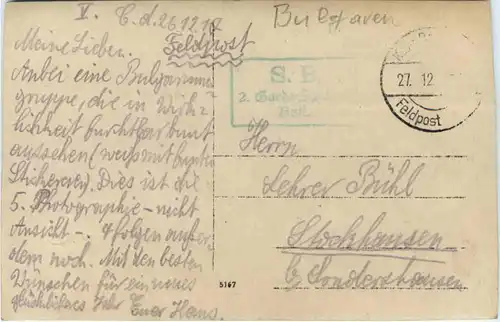 V. C. d. 26.12.17
Feldpost
Bulgaren
Meine Lieben.
Anbei eine Bulgarinnen
gruppe, die in Wirk-
lichkeit furchtbar bunt
aussehen (weiß mit bunten
Stickereien). Dies ist die
5. Photographie - nicht
Ansicht -. 4 folgen außer
dem noch. Mit den besten
Wünschen für ein neues
glückliches Jahr Euer Hans.
S. B.
2.
27. 12
Feldpost
Herrn
Lehrer Bühl
Stockhausen
b/ Sondershausen
5167